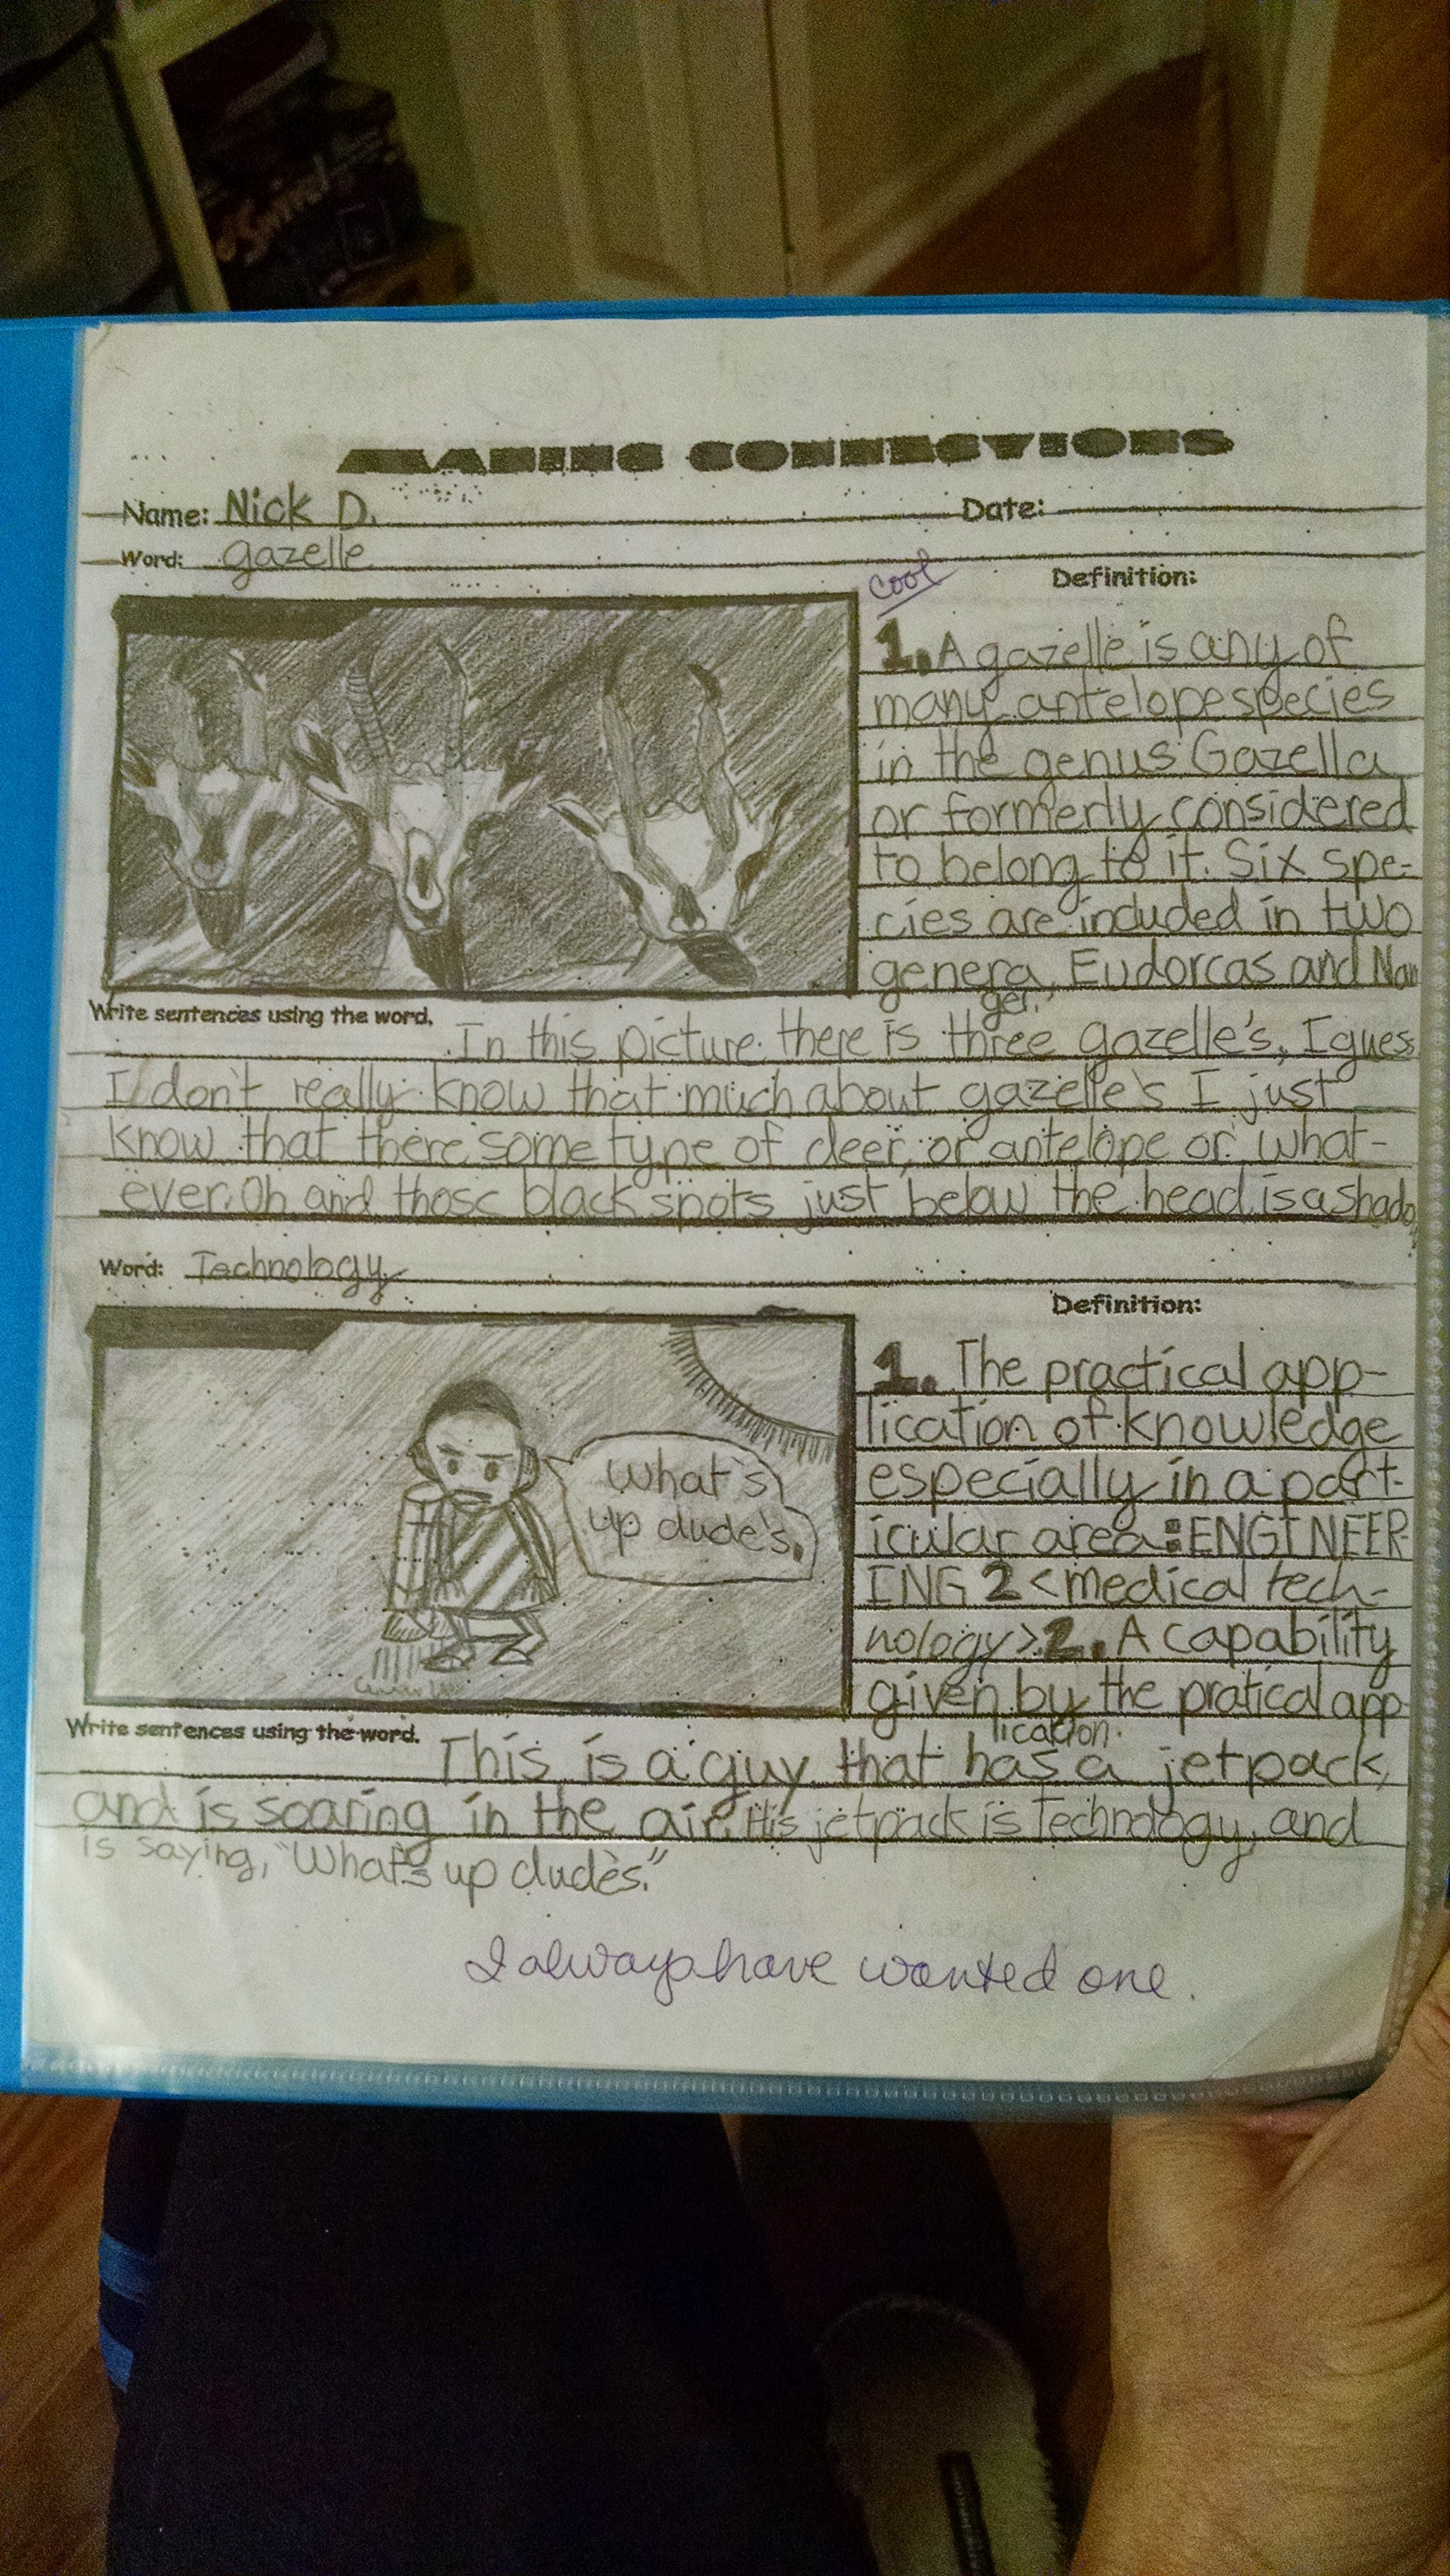 MAKING CONNECTIONS
Name: Nick D. Date:
Word: gazelle
cool
Definition:
1. A gazelle is any of
many antelope species
in the genus Gazella
or formerly considered
to belong to it. Six spe-
cies are included in two
genera, Eudorcas and Nan
ger.
Write sentences using the word.
In this picture there is three gazelle's, I guess
I don't really know that much about gazelle's I just
know that there some type of deer, or antelope or what-
ever. Oh and those black spots just below the head is a shado
Word: Technology
Definition:
What's
up dude's.
1. The practical app-
lication of knowledge
especially in a part-
icular area: ENGINEER-
ING 2 <medical tech-
nology> 2. A capability
given by the pratical app-
lication.
Write sentences using the word.
This is a guy that has a jetpack,
and is soaring in the air. His jetpack is Technology, and
is saying, "What's up dude's."
I always have wanted one.